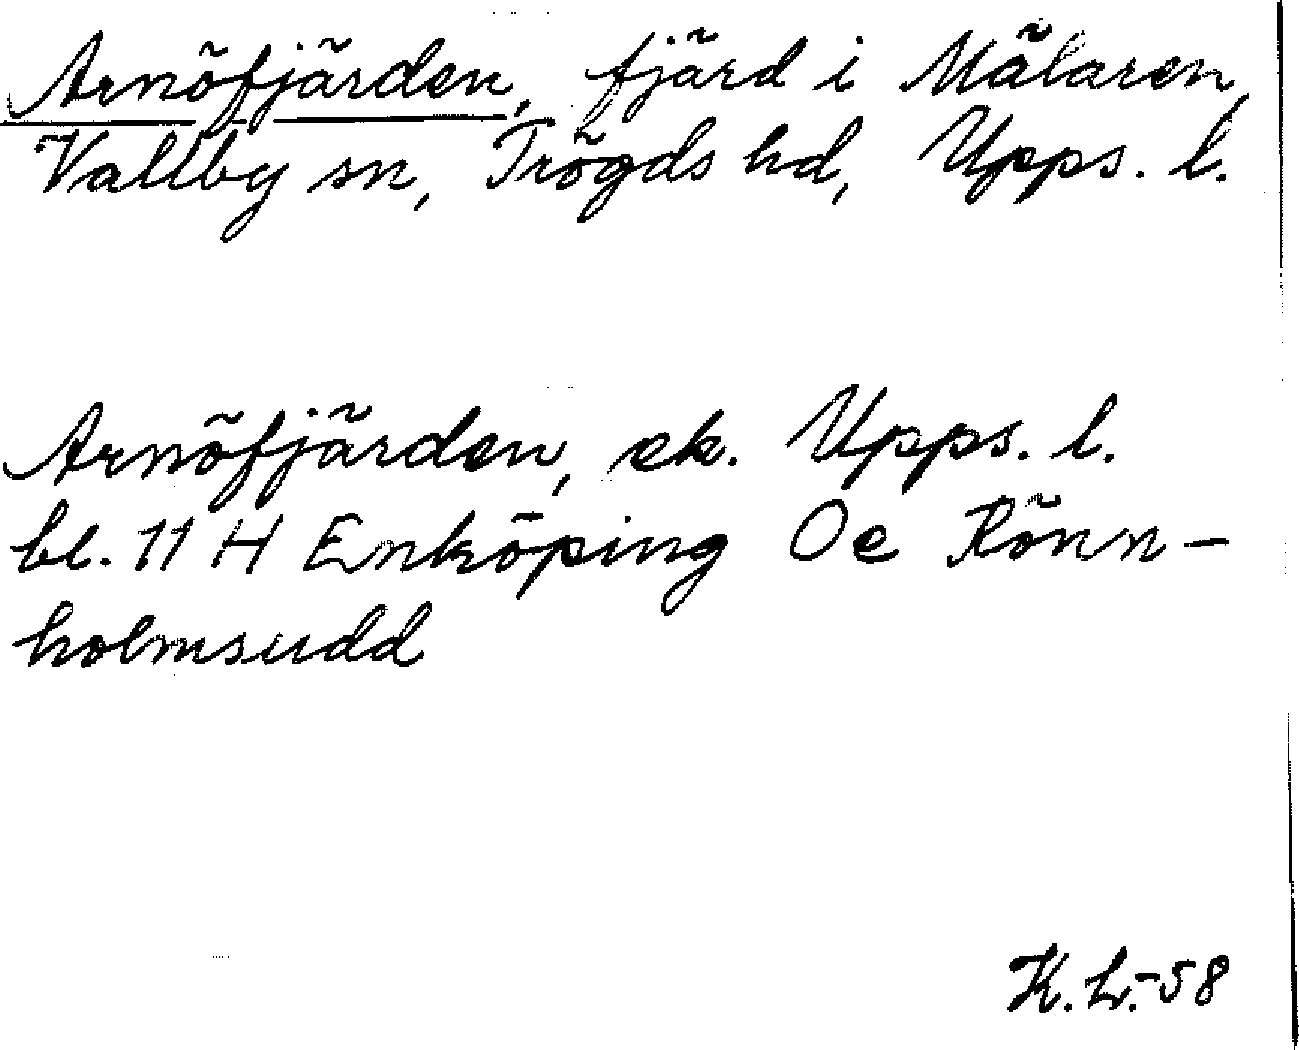 Arnöfjärden, fjärd i Mälaren,
Vallby sn, Trögds hd, Upps. l.
Arnöfjärden, ek. Upps. l.
bl. 11 H Enköping Oe Rönn-
holmsudd
K. L. -58